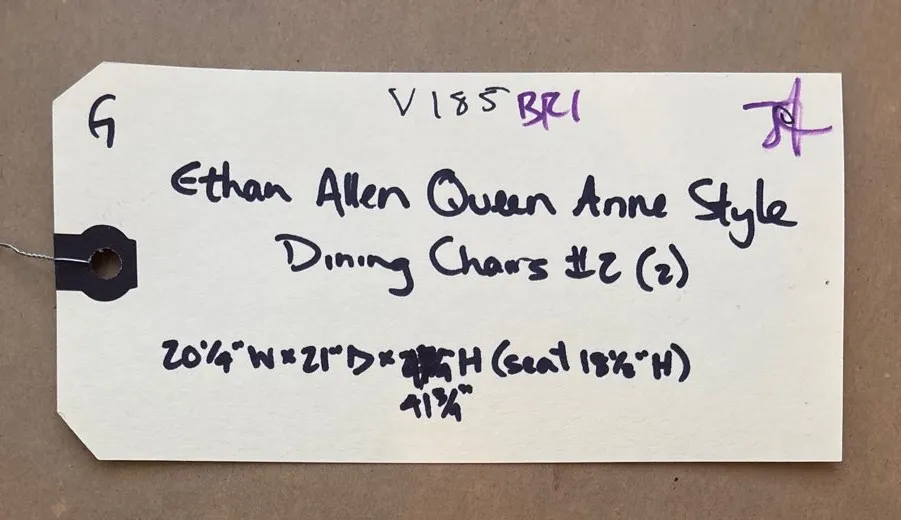 G
V185 BR1
Ethan Allen Queen Anne Style
Dining Chairs #2 (2)
20¼" W × 21" D × H (seat 18½" H)
41¾"